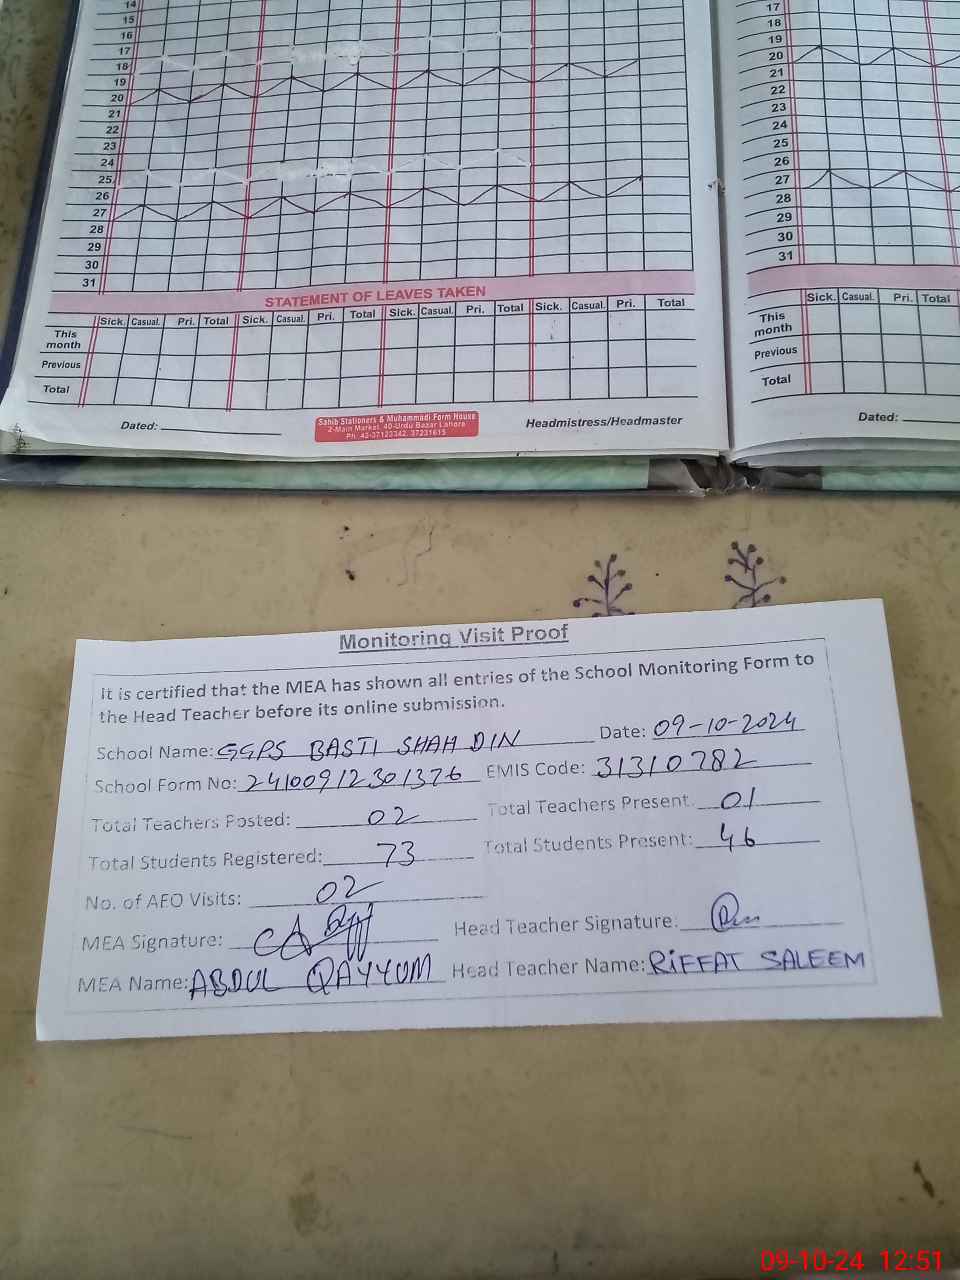 14
15
16
17
18
19
20
21
22
23
24
25
26
27
28
29
30
31
STATEMENT OF LEAVES TAKEN
Sick. Casual. Pri. Total Sick. Casual. Pri. Total Sick. Casual. Pri. Total Sick. Casual. Pri. Total
This month
Previous
Total
Dated:
Sahib Stationers & Muhammadi Form House
2-Main Market, 40-Urdu Bazar Lahore
Ph. 42-37122342, 37231615
Headmistress/Headmaster
17
18
19
20
21
22
23
24
25
26
27
28
29
30
31
Sick. Casual. Pri. Total
This month
Previous
Total
Dated:
Monitoring Visit Proof
It is certified that the MEA has shown all entries of the School Monitoring Form to
the Head Teacher before its online submission.
School Name: GGPS BASTI SHAH DIN Date: 09-10-2024
School Form No: 24100912301376 EMIS Code: 31310782
Total Teachers Posted: 02 Total Teachers Present: 01
Total Students Registered: 73 Total Students Present: 46
No. of AEO Visits: 02
MEA Signature: Head Teacher Signature:
MEA Name: ABDUL QAYYUM Head Teacher Name: RiFFAT SALEEM
09-10-24 12:51